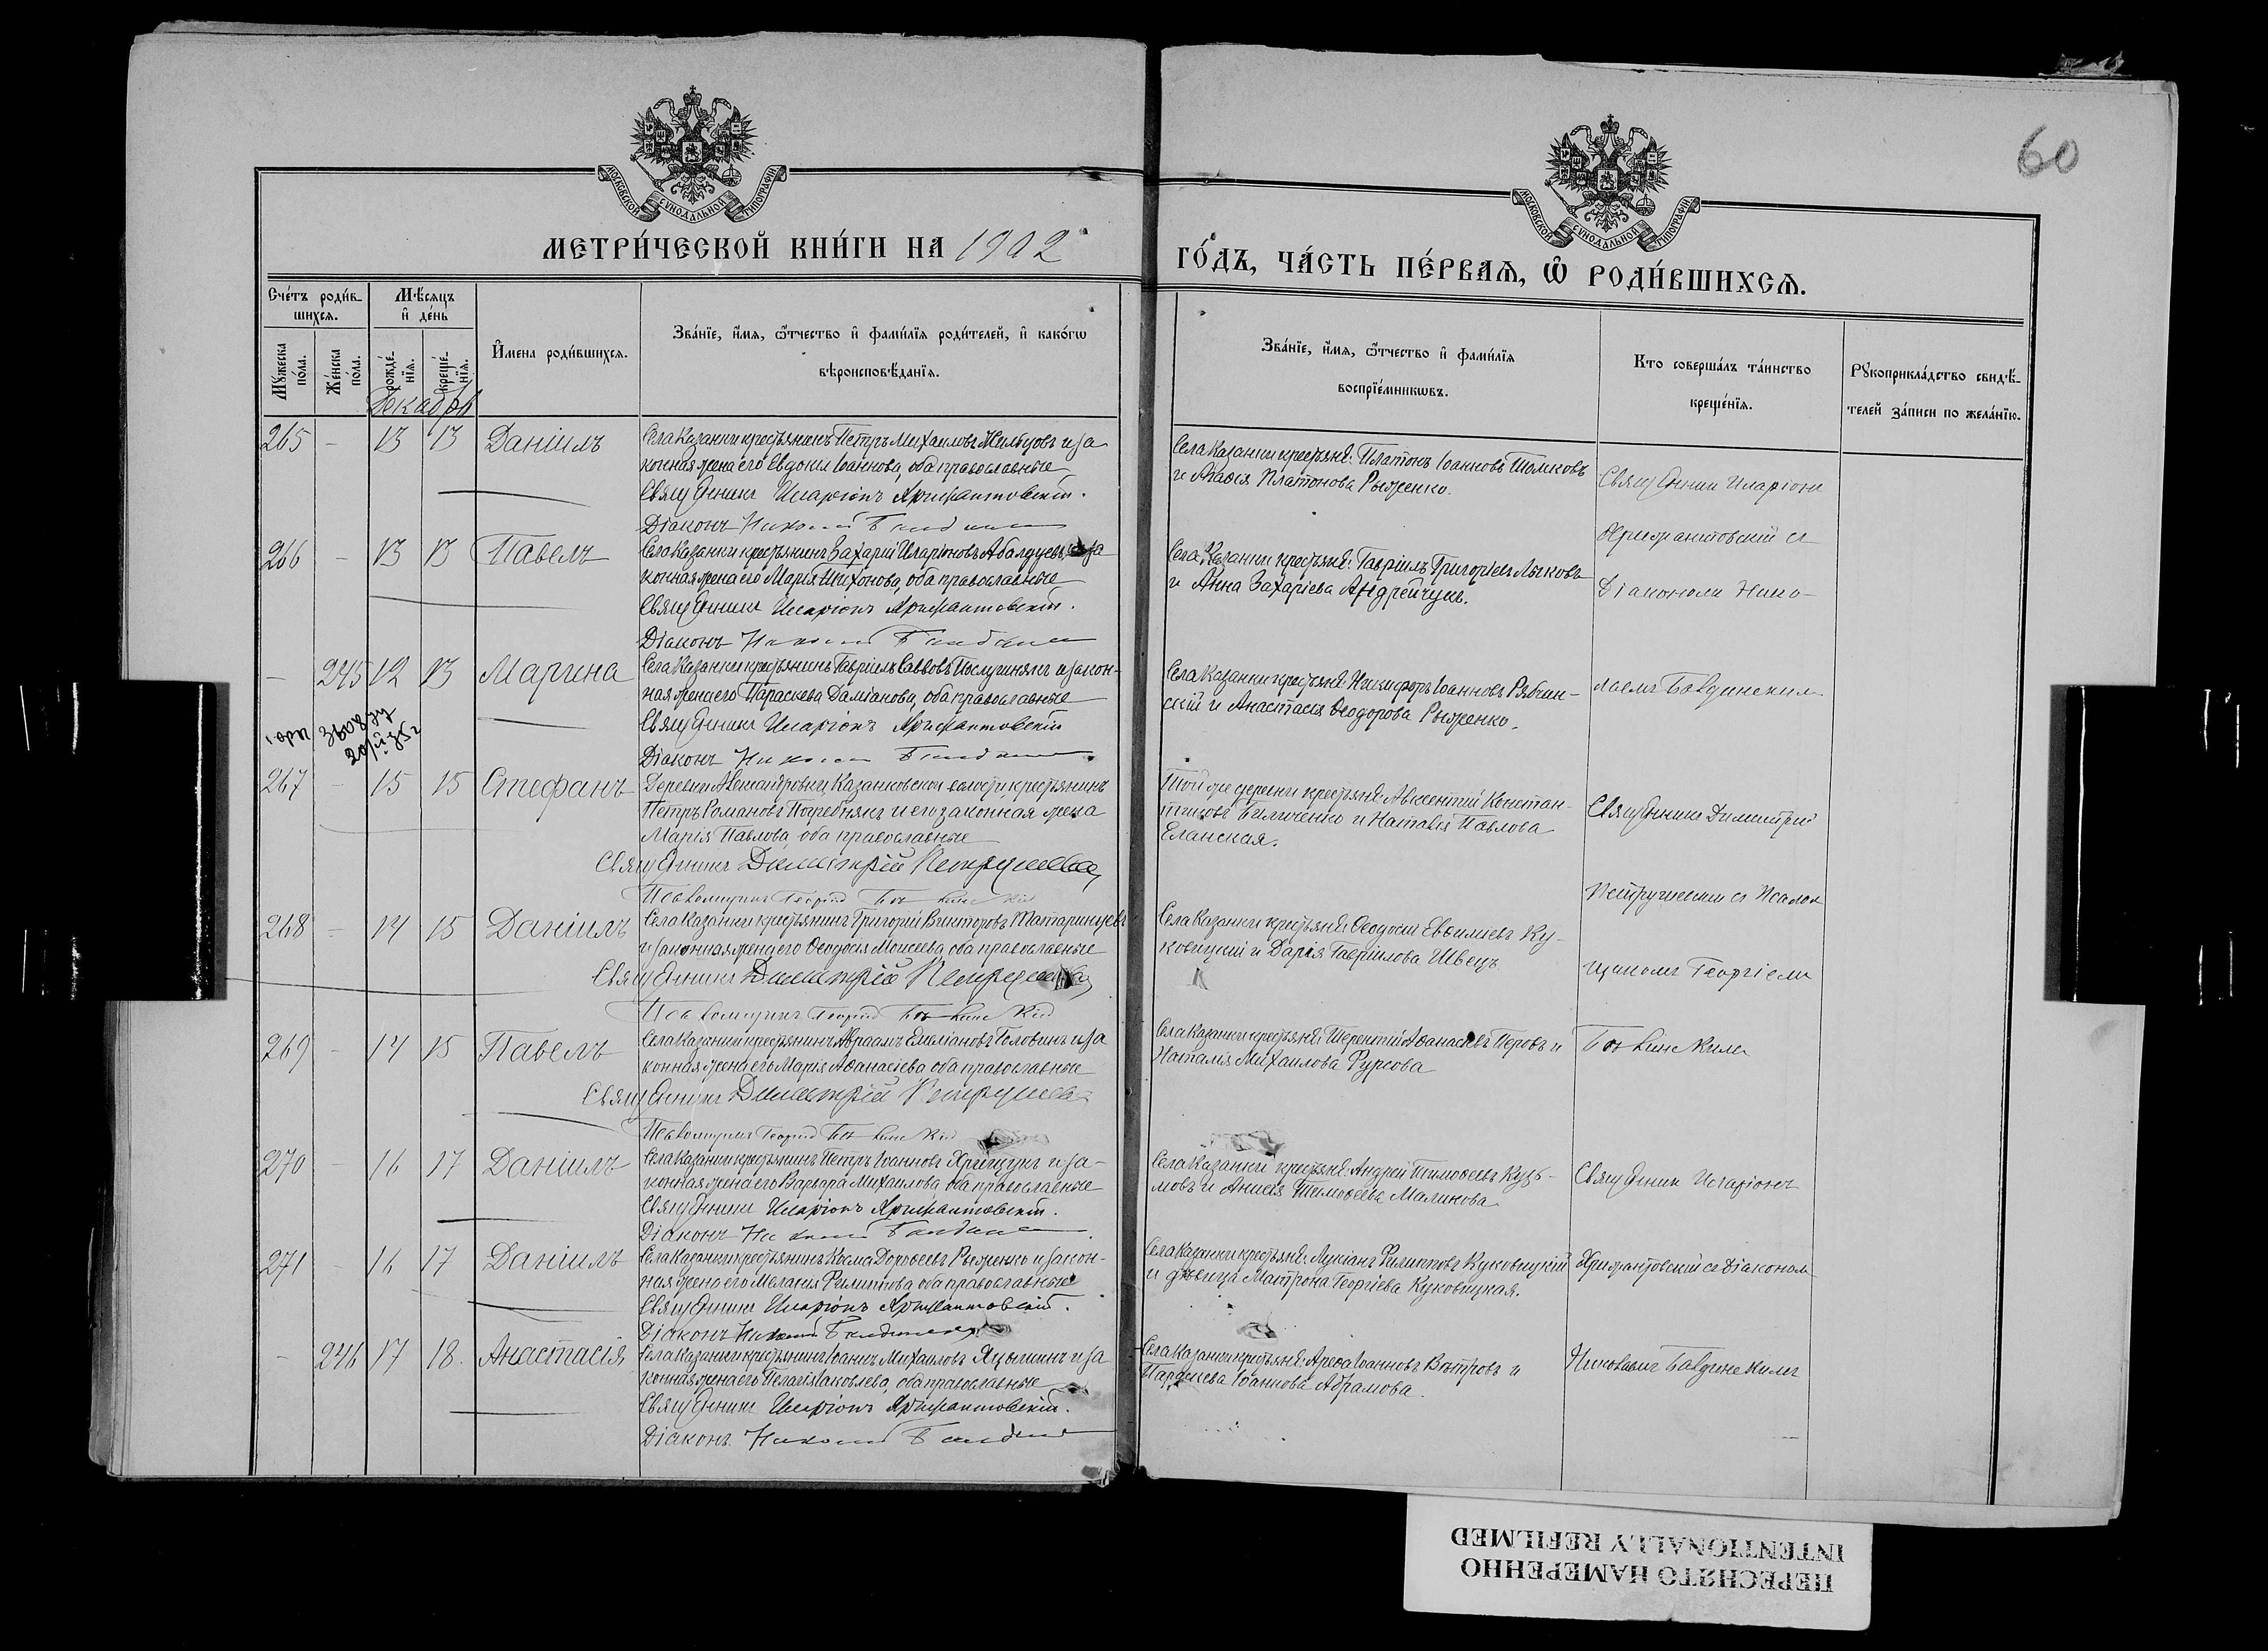 60
МОСКОВСКОЙ СѴНОДАЛЬНОЙ ТИПОГРАФІИ
МОСКОВСКОЙ СѴНОДАЛЬНОЙ ТИПОГРАФІИ
МЕТРИ́ЧЕСКОЙ КНИ́ГИ НА 1902
ГО́ДЪ, ЧА́СТЬ ПЕ́РВАѦ, Ѽ РОДИ́ВШИХСѦ.
Сче́тъ роди́в-
шихсѧ.
Мѣ́сѧцъ
и҆ де́нь
Мꙋжеска по́ла.
Же́нска по́ла.
рожде́-
нїѧ.
креще́-
нїѧ.
Декабрь
И҆мена роди́вшихсѧ.
Зва́нїе, и҆́мѧ, ѻ҆́тчество и҆ фами́лїѧ роди́телей, и҆ како́гѡ
вѣроисповѣ́данїѧ.
Зва́нїе, и҆́мѧ, ѻ҆́тчество и҆ фами́лїѧ
воспрїе́мникѡвъ.
Кто соверша́лъ та́инство
креще́нїѧ.
Рꙋкоприкла́дство свидѣ́-
телей за́писи по жела́нїю.
265 - 13 13 Даніилъ
Села Казанки крестьянинъ Петръ Михаиловъ и за
конная жена его Евдокія Іоаннова, оба православные
Священникъ Иларіонъ Хрисантовскій.
Діаконъ Николай
Села Казанки крестьяне: Платонъ Іоанновъ
и Агафія Платонова Рыженко.
Священник Иларіонъ
Хрисантовскій съ
Діакономъ Нико-
266 - 13 13 Павелъ
Села Казанки крестьянинъ Захарій Иларіоновъ Абалдуевъ и за
конная жена его Марія Тихонова, оба православные
Священникъ Иларіонъ Хрисантовскій.
Діаконъ Николай
Села Казанки крестьяне: Гавріилъ Григоріевъ Лысковъ
и Анна Захаріева Андрейчукъ.
- 245 12 13 Марина
Села Казанки крестьянинъ Гавріилъ Саввовъ и закон-
ная жена его Параскева Даміанова, оба православные
Священникъ Иларіонъ Хрисантовскій
Діаконъ Николай
Села Казанки крестьяне Никифоръ Іоанновъ Рябчин-
скій и Анастасія Ѳеодорова Рыженко.
лаемъ
267 - 15 15 Стефанъ
Деревни Александровки, Казанковской волости крестьянинъ
Петръ Романовъ Погребнякъ и его законная жена
Марія Павлова, оба православные
Священникъ Димитрій
Псаломщикъ Георгій
Той же деревни крестьяне: Авксентій Констан-
тиновъ и Наталія Павлова
Еланская.
Священникъ Димитрій
съ Псалом
268 - 14 15 Даніилъ
Села Казанки крестьянинъ Григорій Викторовъ Татаринцевъ
и законная жена его Ѳеодосія Моисеева оба православные
Священникъ Димитрій
Псаломщикъ Георгій
Села Казанки крестьяне Ѳеодосій Ку-
ковицкій и Дарія Гавріилова Швецъ
щикомъ Георгіемъ
269 - 14 15 Павелъ
Села Казанки крестьянинъ Авраамъ Емиліановъ Головинъ и за
конная жена его Марія Аѳанасіева оба православные
Священникъ Димитрій
Псаломщикъ Георгій
Села Казанки крестьяне Терентій Аѳанасіевъ Перовъ и
Наталія Михаилова Рурсова
270 - 16 17 Даніилъ
Села Казанки крестьянинъ Петръ Іоанновъ и за-
конная жена его Варвара Михаилова оба православные
Священникъ Иларіонъ Хрисантовскій.
Діаконъ Николай
Села Казанки крестьяне: Андрей Тимоѳеевъ Кузь-
мовъ и Анисія Тимоѳеева Малинова
Священник Иларіонъ
271 - 16 17 Даніилъ
Села Казанки крестьянинъ Косма Дороѳеевъ Рыженко и закон-
ная жена его Меланія Филиппова оба православные
Священникъ Иларіонъ Хрисантовскій.
Діаконъ Николай
Села Казанки крестьяне: Лукіанъ Филипповъ Куковицкій
и дѣвица Матрона Георгіева Куковицкая.
Хрисантовскій съ Діаконом
- 246 17 18 Анастасія
Села Казанки крестьянинъ Іоаннъ Михаиловъ и за
конная жена его Пелагія Іаковлева, оба православные
Священникъ Иларіонъ Хрисантовскій.
Діаконъ Николай
Села Казанки крестьяне: Ареѳа Іоанновъ Вѣтровъ и
Параскева Іоаннова Абрамова.
Николаемъ
ПЕРЕСНЯТО НАМЕРЕННО
INTENTIONALLY REFILMED